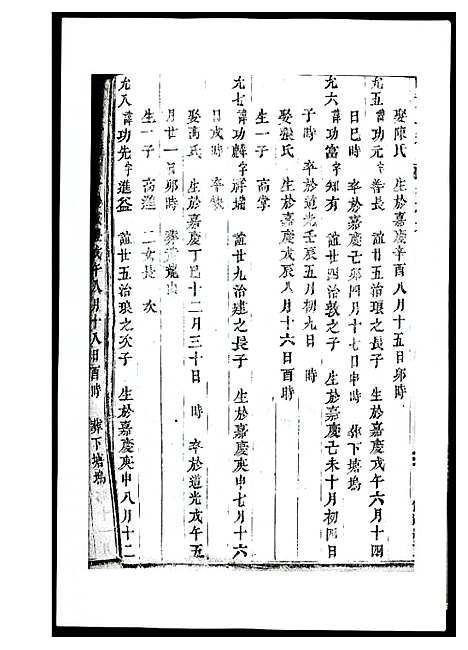 娶陳氏 生於嘉慶辛酉八月十五日卯時
允五 諱功元字善長 誼廿五治琅之子 生於嘉慶戊午六月十四
日巳時 卒於嘉慶己卯四月十七日申時 葬下塘塢
允六 諱功富字知有 誼世四治敦之子 生於嘉慶己未十月初四日
子時 卒於道光壬辰五月初九日 時
娶張氏 生於嘉慶戊辰八月十六日酉時
生一子 高掌
允七 諱功麟字祥瑞 誼世九治建之長子 生於嘉慶庚申七月十六
日戌時 卒缺
娶馮氏 生於嘉慶丁巳十二月三十日 時 卒於道光戊午五
月廿一日卯時 葬
生一子 高進 二女長 次
允八 諱功先字進益 誼世五治琅之次子 生於嘉慶庚申八月十二
戊午八月十八日酉時 葬下塘塢